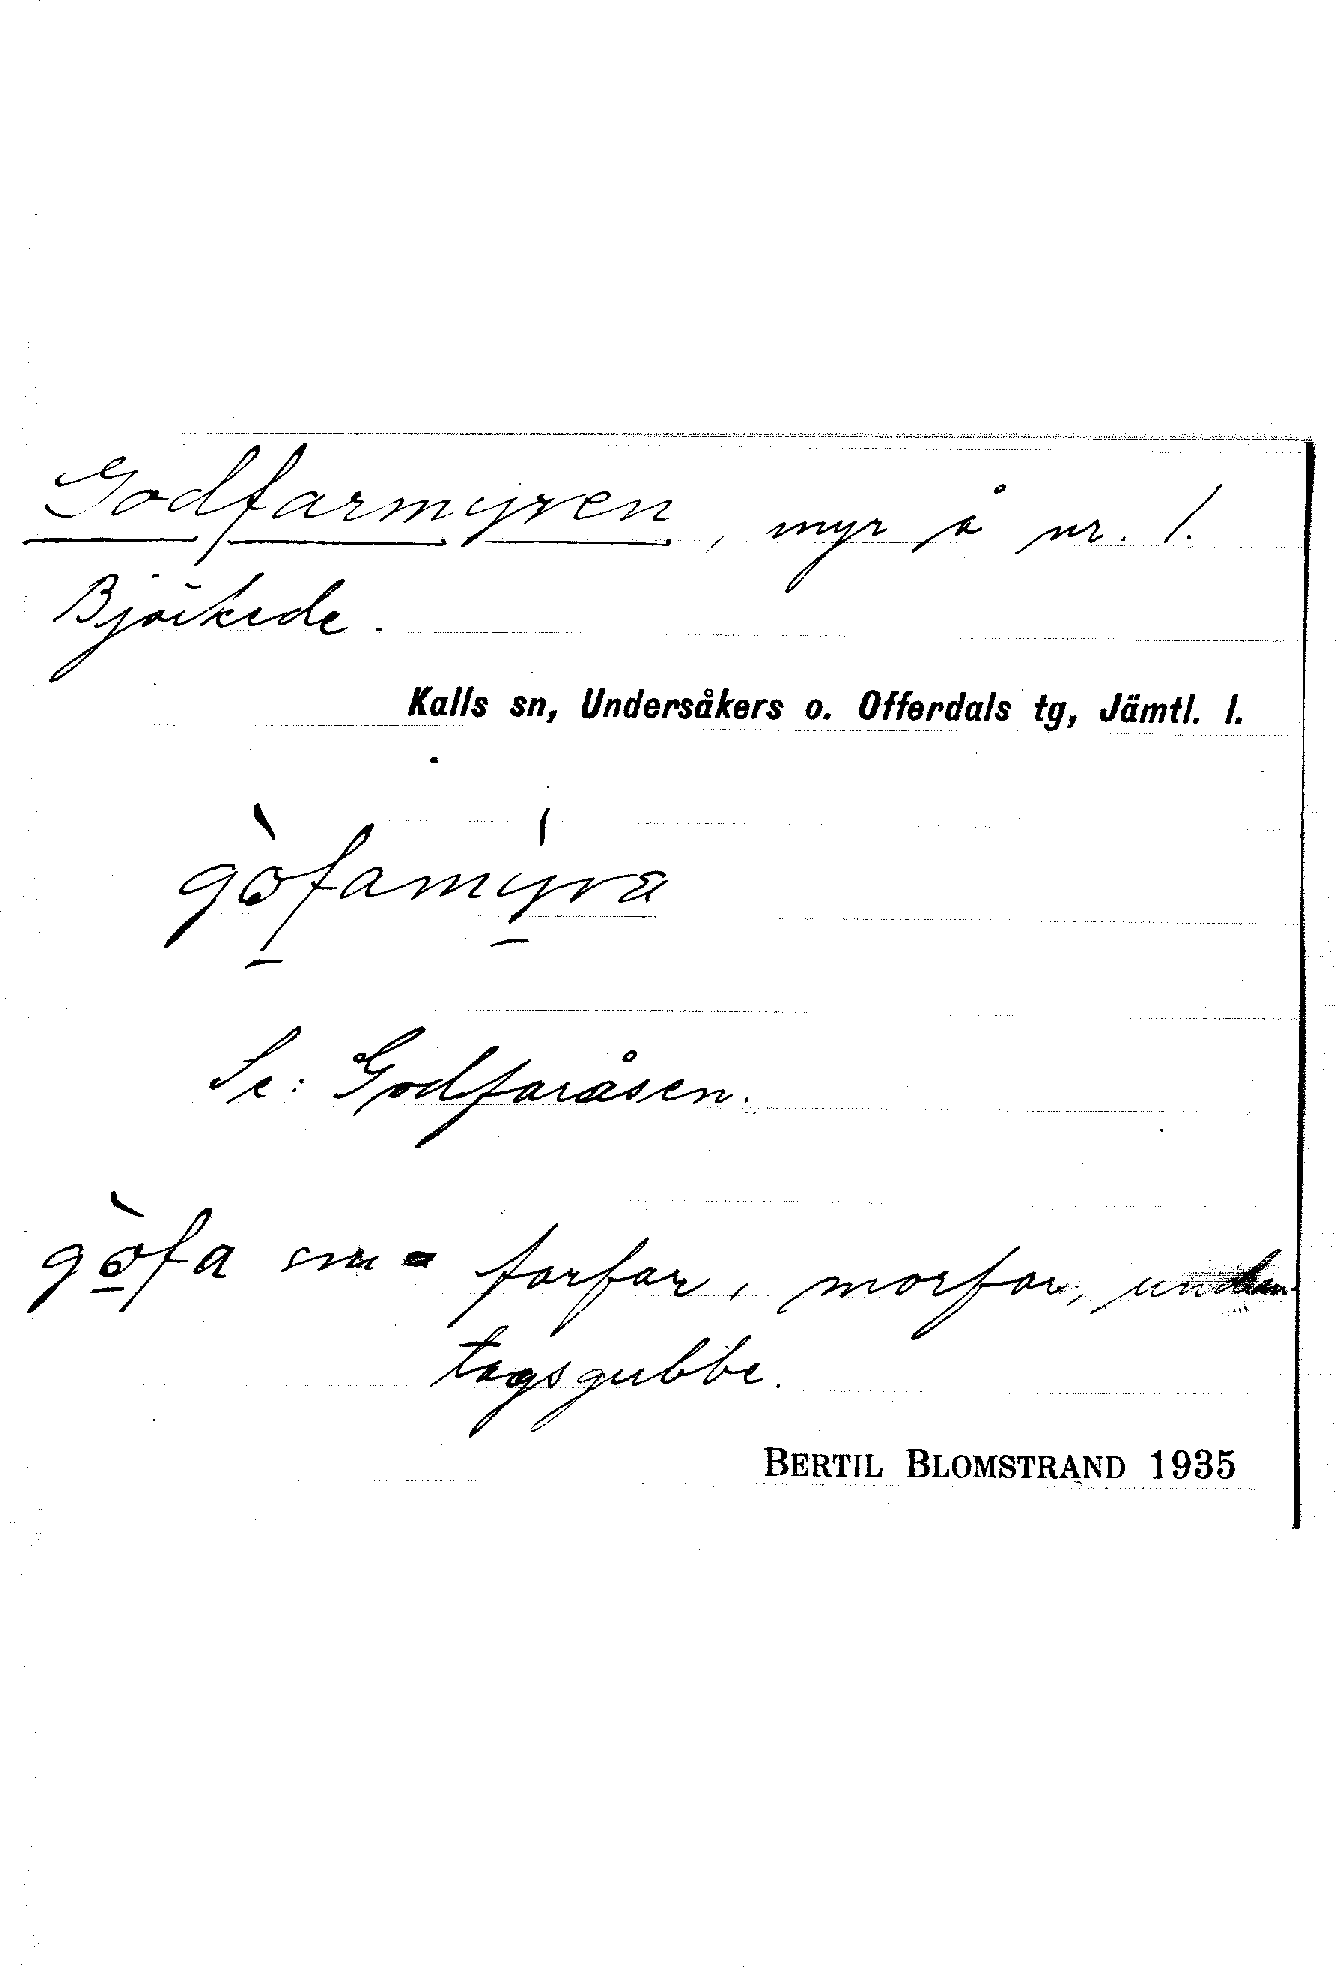 Godfarmyren, myr å nr. 1.
Björkede.
Kalls sn, Undersåkers o. Offerdals tg, Jämtl. l.
gòfamýra
Se: Godfaråsen.
gòfa sm = farfar, morfar, undan-
tagsgubbe.
BERTIL BLOMSTRAND 1935